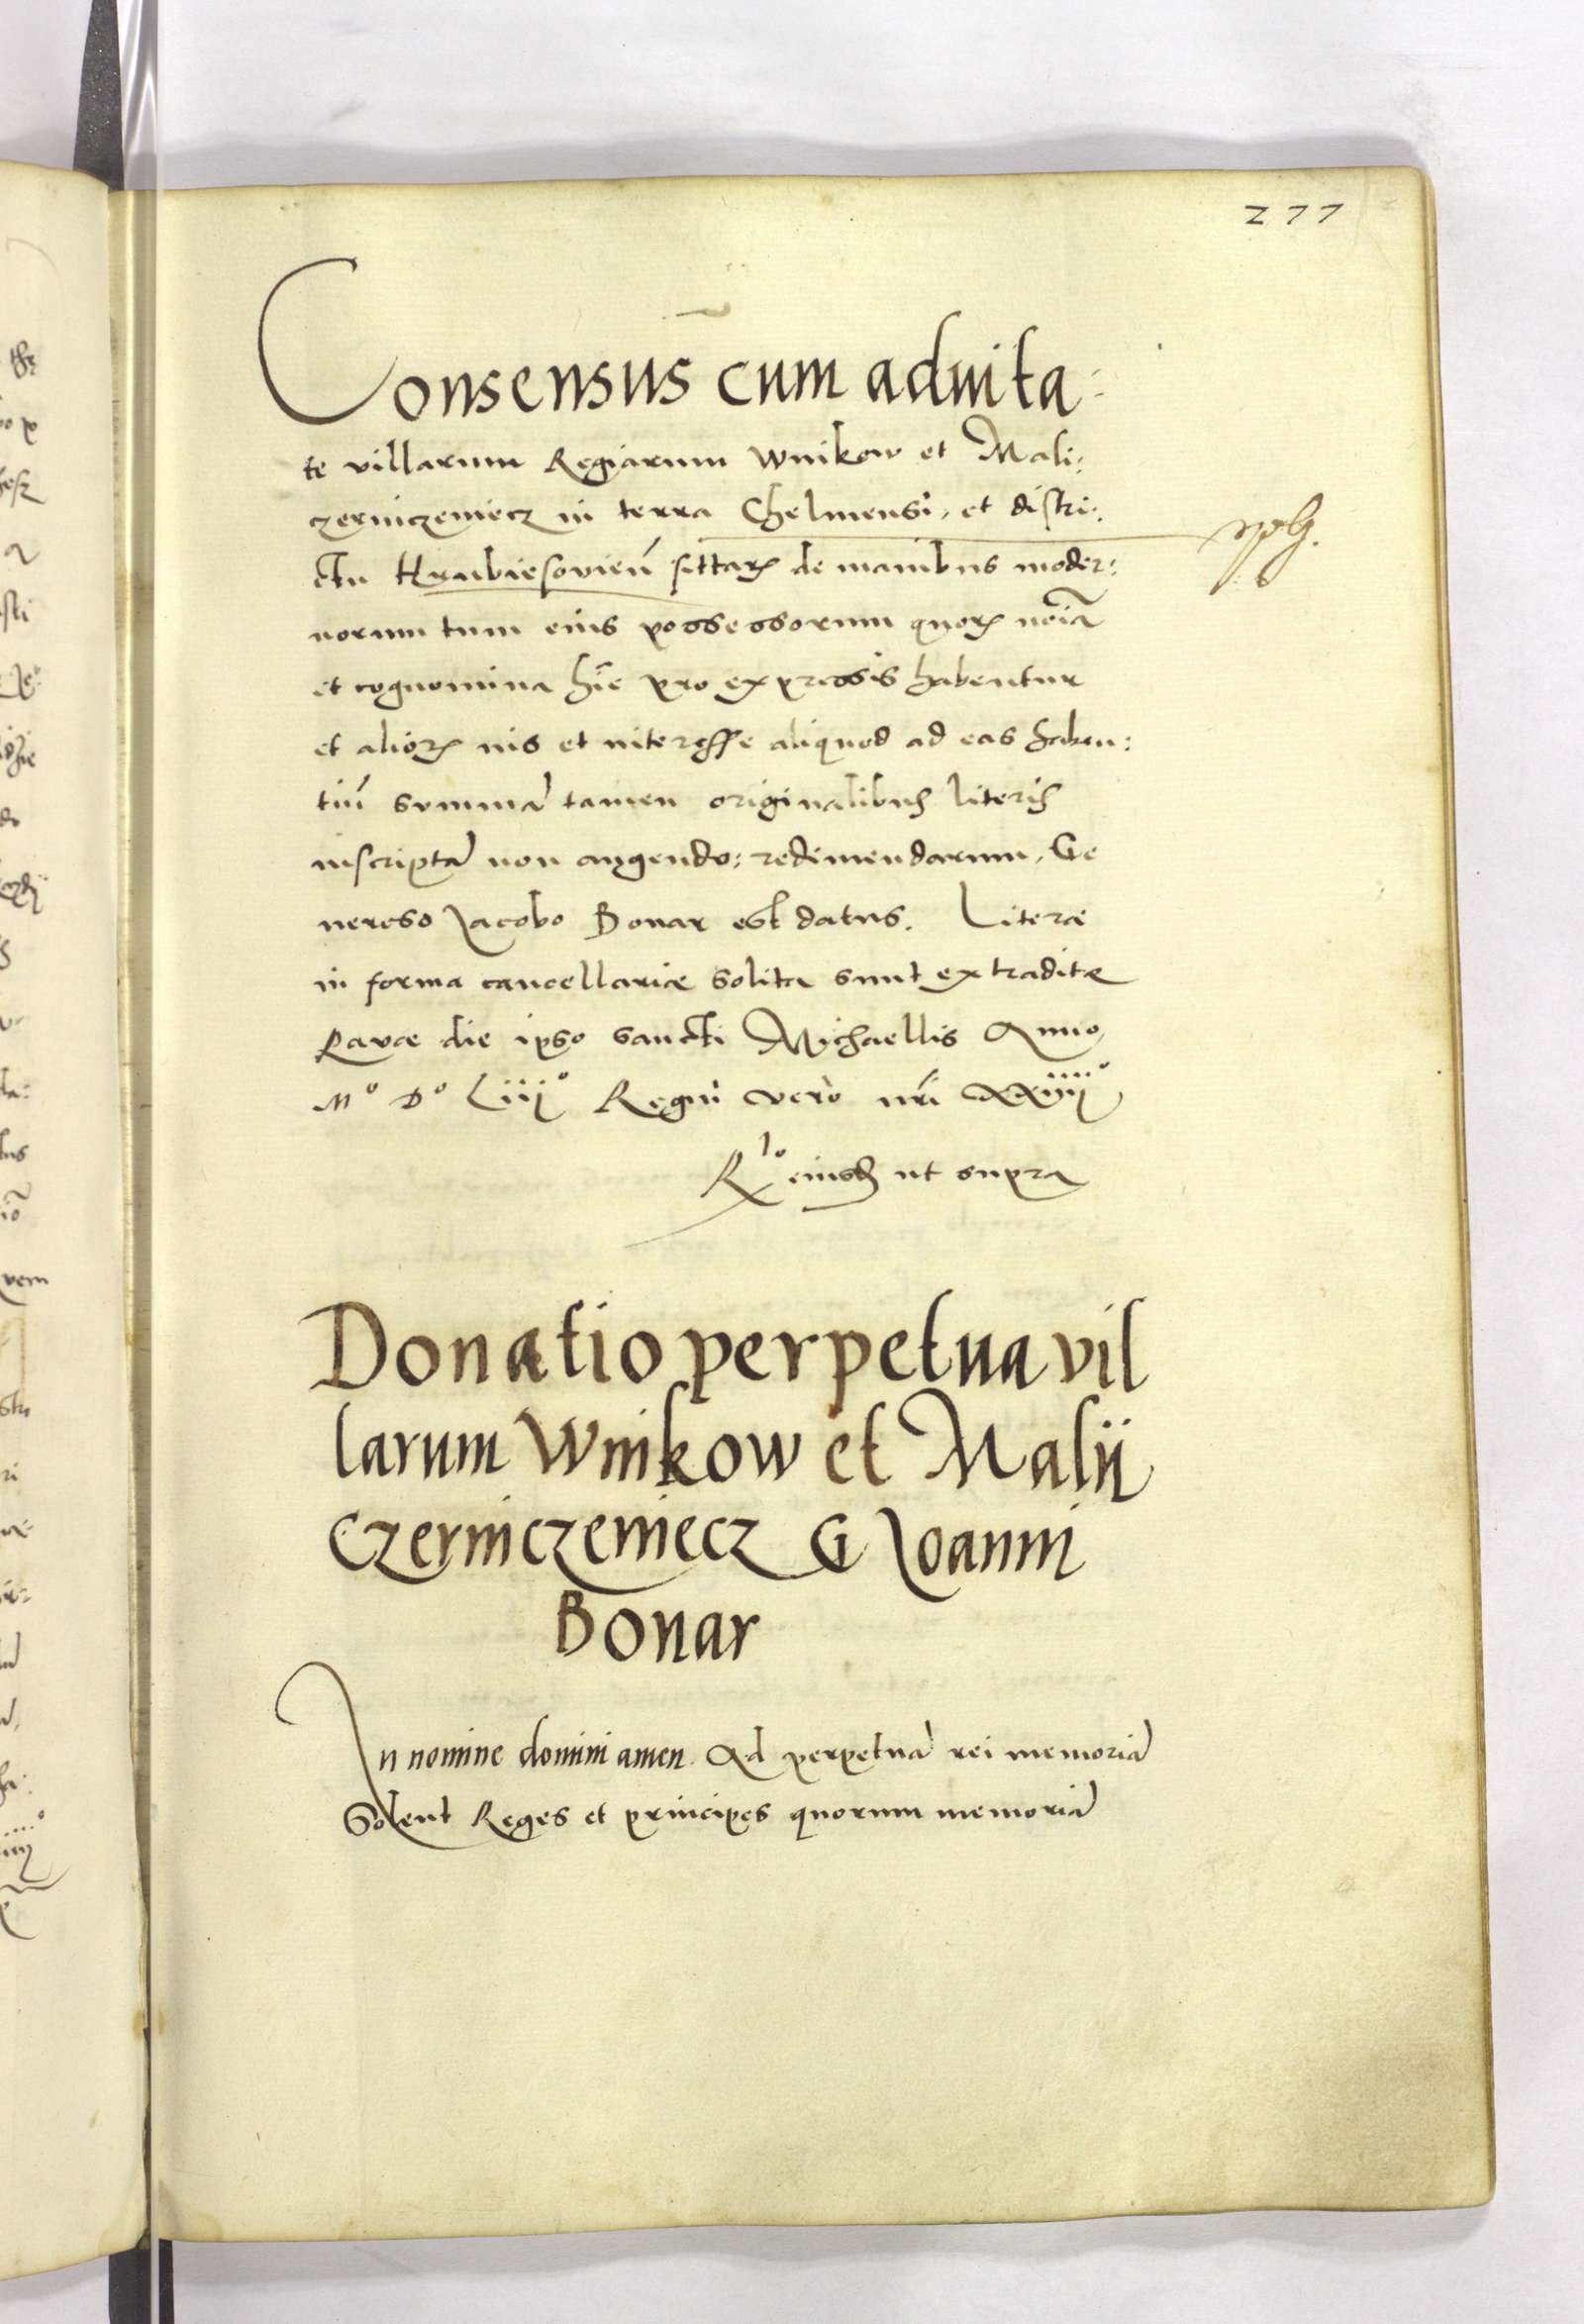 277
Consensus cum aduita:
te villarum Regiarum Wnikow et Mali:
czerniczeniecz in terra Chelmensi, et distri:
ctu Hrubiesovień sittarꝝ de manibus moder:
norum tum eius possessorum quorꝝ noīa
et cognomina hīc pro expressis habentur
et aliorꝝ ius et interesse aliquod ad eas haben:
tiū summā tamen originalibus literis
inscriptā non augendo: redimendarum, Ge
neroso Jacobo Bonar est datus. Literæ
in forma cancellariæ solita sunt extraditæ
Ravæ die ipso sancti Michaellis Anno
Mº Dº Liiijº Regni vero nri xxiiijº
Rlo eiusdē ut supra
Donatio perpetua vil
larum Wnikow et Malij
Czerniczeniecz G Joanni
Bonar
In nomine domini amen. Ad perpetuā rei memoriā
Solent Reges et principes quorum memoriā